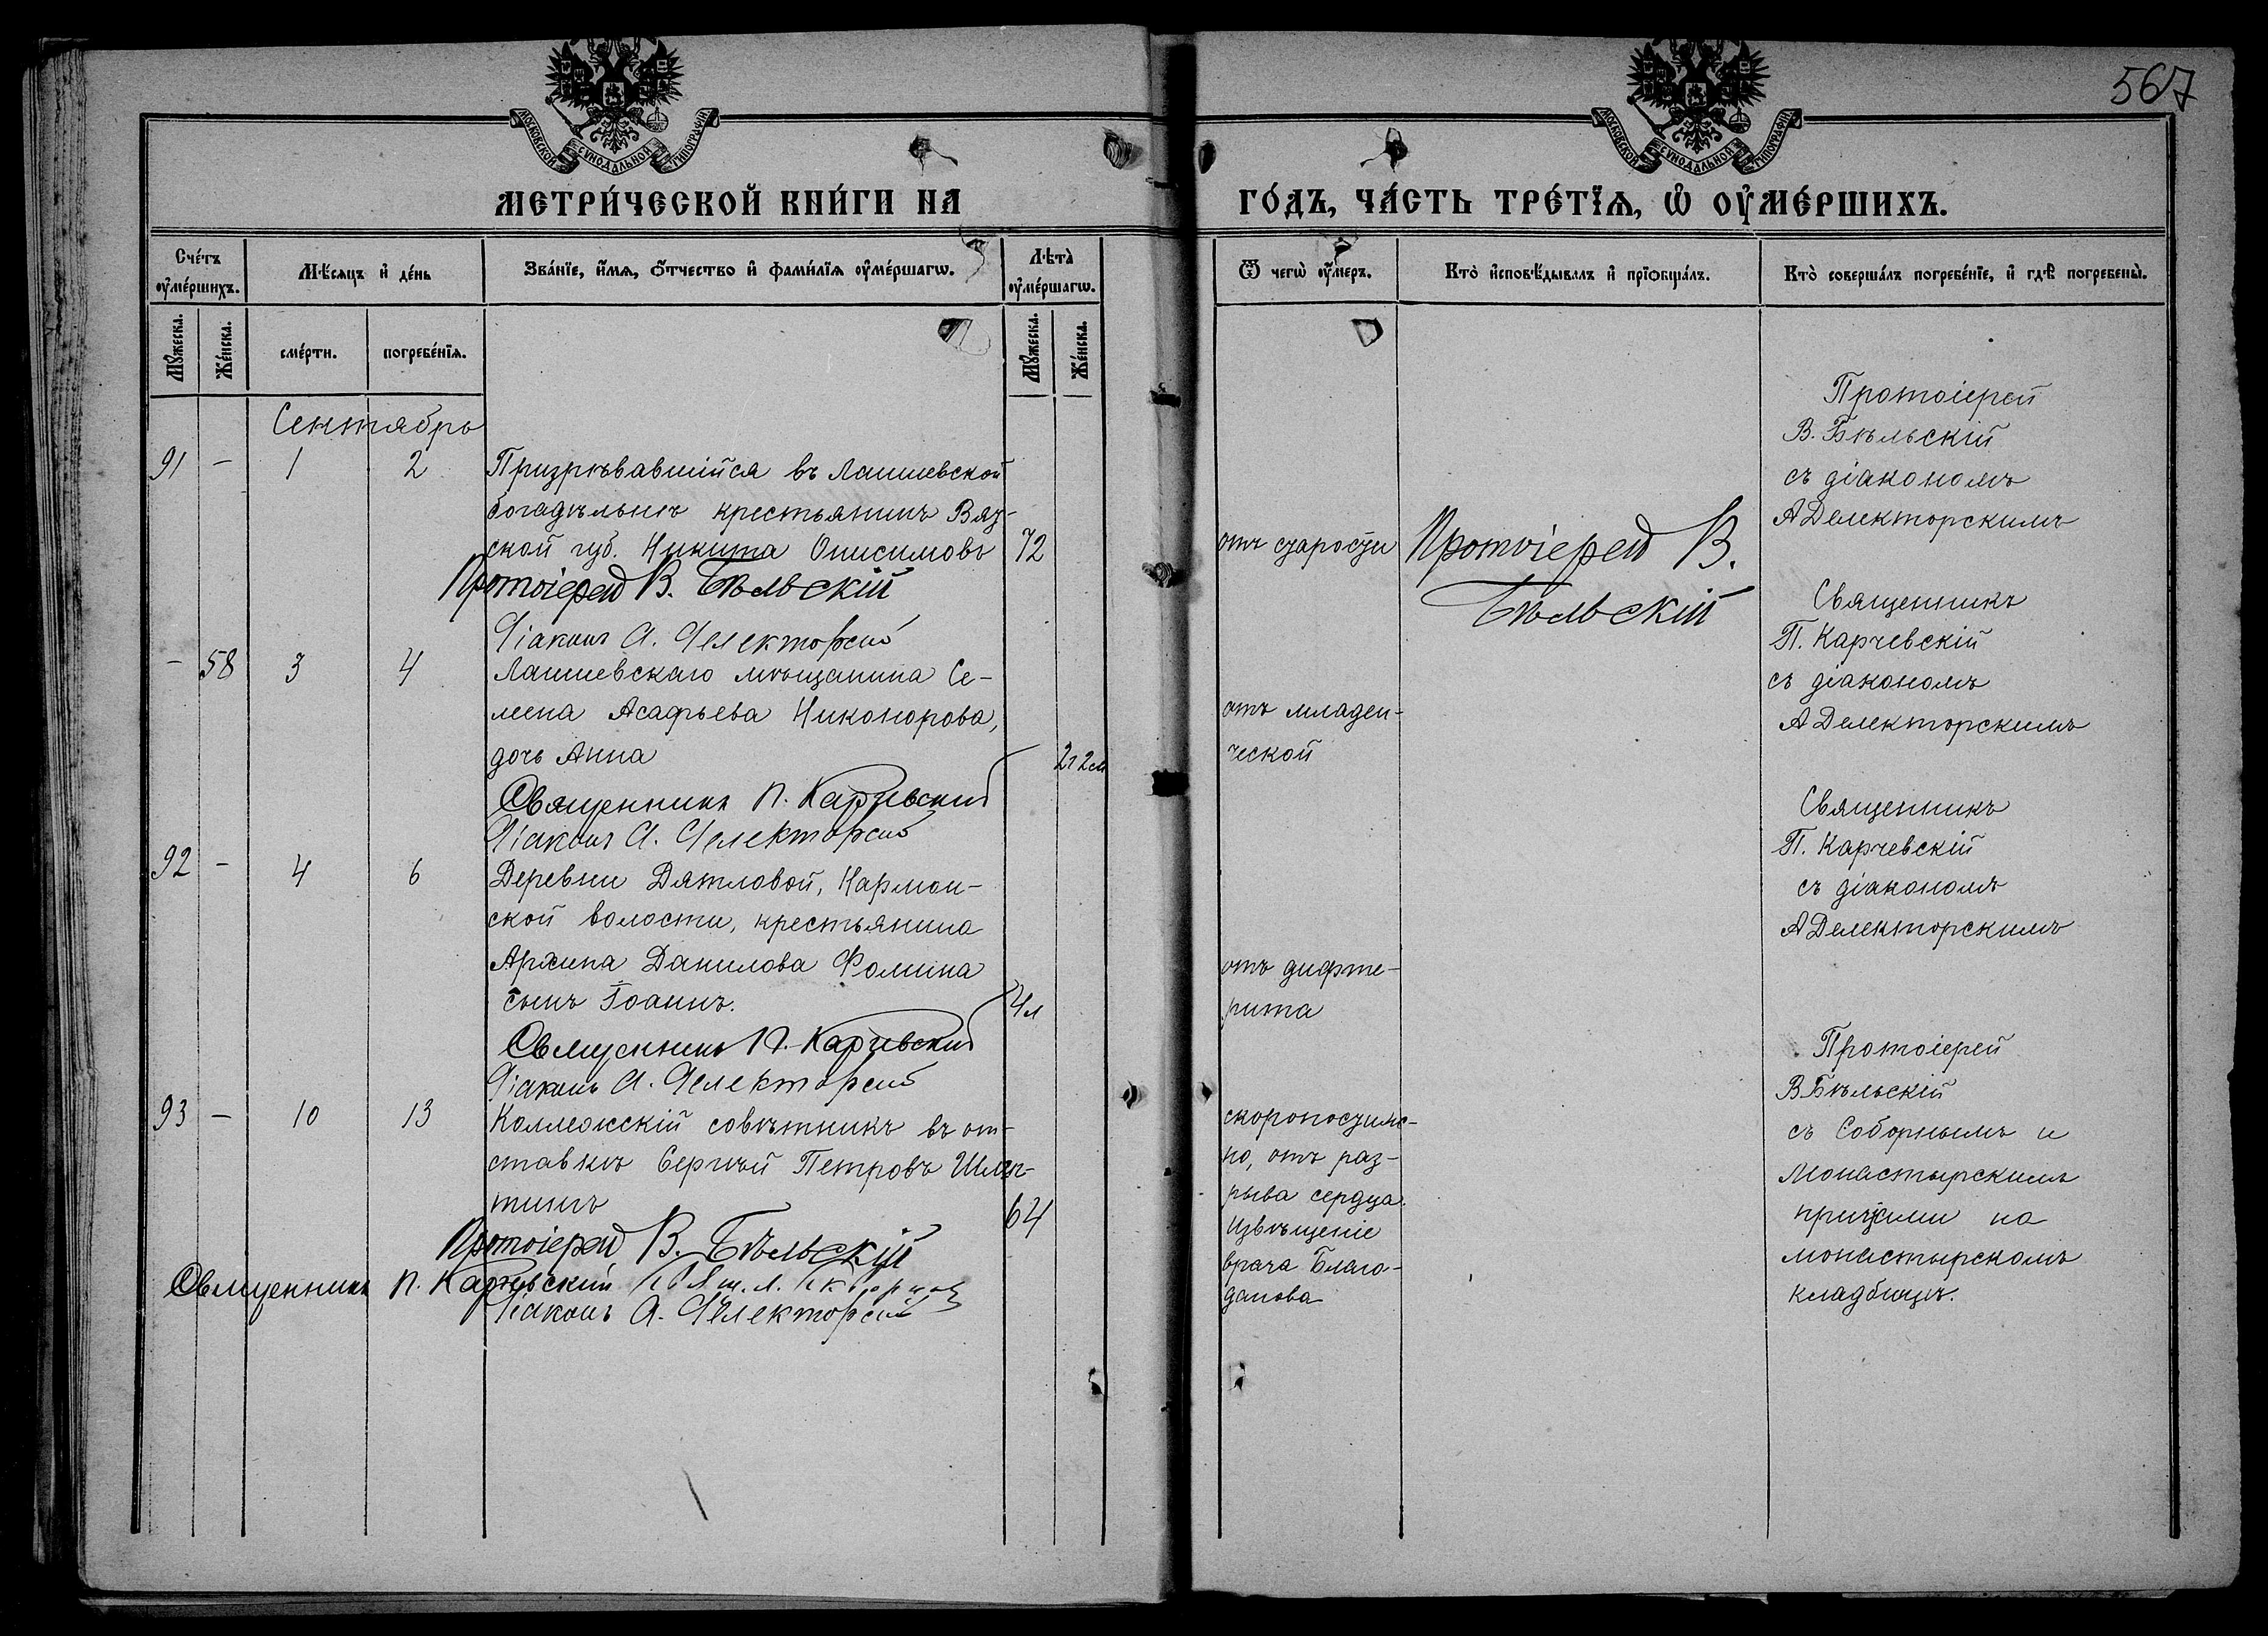 567
МОСКОВСКОЙ СѴНОДАЛЬНОЙ ТИПОГРАФІИ
МОСКОВСКОЙ СѴНОДАЛЬНОЙ ТИПОГРАФІИ
МЕТРИ́ЧЕСКОЙ КНИ́ГИ НА
ГО́ДЪ, ЧА́СТЬ ТРЕ́ТЇѦ, Ѡ҆ ОУ҆МЕ́РШИХЪ.
Сче́тъ оу҆ме́ршихъ.
Мѣ́сяцъ и҆ де́нь
Зва́нїе, и҆́мѧ, ѻ҆́тчество и҆ фами́лїѧ оу҆ме́ршагѡ.
Лѣта̀ оу҆ме́ршагѡ.
Ѿ чегѡ̀ оу҆́меръ.
Кто̀ и҆сповѣ́дывалъ и҆ прїѻбща́лъ.
Кто̀ соверша́лъ погребе́нїе, и҆ гдѣ̀ погребены̀.
Мꙋ́жеска.
Же́нска.
сме́рти.
погребе́нїѧ.
Мꙋ́жеска.
Же́нска.
Сентябрь
91 – 1 2 Призрѣвавшійся въ Лаишевской
богадѣльнѣ крестьянинъ Вят-
ской губ. Никита Онисимовъ 72
Протоіерей В. Бѣльскій
Діаконъ А. Делекторскій
отъ старости
Протоіерей В.
Бѣльскій
Протоіерей
В. Бѣльскій
съ діакономъ
А Делекторскимъ
– 58 3 4 Лаишевскаго мѣщанина Се-
мена Асафьева Никонорова,
дочь Анна 2 г 2 м
Священникъ П. Карчевскій
Діаконъ А. Делекторскій
отъ младен-
ческой
Священникъ
П. Карчевскій
съ діакономъ
А Делекторскимъ
92 – 4 6 Деревни Дятловой, Карман-
ской волости, крестьянина
Архипа Данилова Фомина
сынъ Іоаннъ. 4 л
Священникъ П. Карчевскій
Діаконъ А. Делекторскій
отъ дифте-
рита
Священникъ
П. Карчевскій
съ діакономъ
А Делекторскимъ
93 – 10 13 Коллежскій совѣтникъ въ от-
ставкѣ Сергѣй Петровъ
тинъ 64
Протоіерей В. Бѣльскій
Священникъ П. Карчевскій
Діаконъ А. Делекторскій
скоропостиж-
но, отъ раз-
рыва сердца.
Извѣщеніе
врача Благо-
данова
Протоіерей
В Бѣльскій
съ Соборнымъ и
Монастырскимъ
причтами на
монастырскомъ
кладбищѣ.